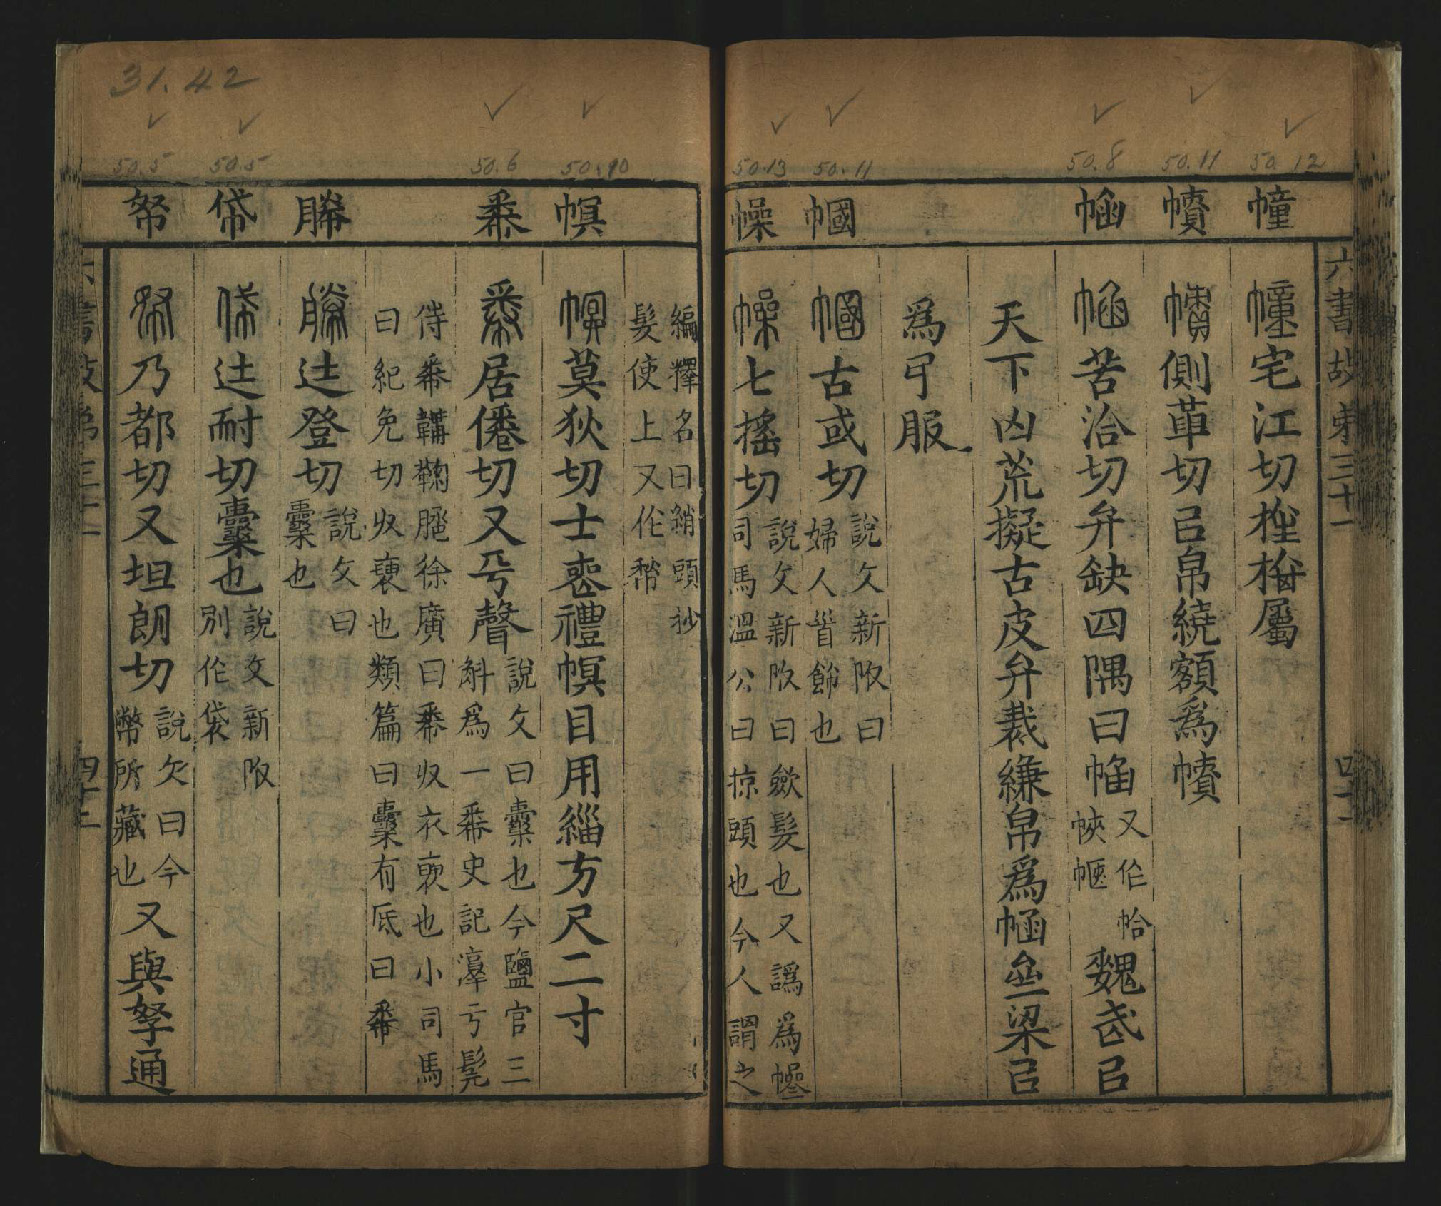 31.42
50.12
50.11
50.8
50.11
50.13
50.10
50.6
50.5
50.5
六書故弟三十一
四十二
幢
幢宅江切㡓楄屬
幘
幘側革切㠯帛繞額爲幘
㡊
㡊苦洽切弁缺四隅曰㡊又作帢㡇㤿魏武㠯
天下凶荒擬古皮弁裁縑帛爲㡊𠀤梁㠯
爲弓服
幗
幗古或切說文新附曰
婦人首飾也
幧
幧七搖切說文新附曰斂髮也又譌爲幓
司馬溫公曰掠頭也今人謂之
編釋名曰綃頭抄
髮使上又作㡑
幎
幎莫狄切士喪禮幎目用緇方尺二寸
㡋
㡋居倦切又平聲說文曰囊也今鹽官三
斛爲一㡋史記淳于髡
侍㡋韝鞠䠆徐廣曰㡋收衣褏也小司馬
曰紀免切收褏也類篇曰囊有底曰㡋
幐
幐辻登切說文曰
囊也
帒
帒辻耐切囊也說文新附
別作袋
帑
帑乃都切又坦朗切說文曰今
幣所藏也又與孥通
六書故弟三十一
四十二